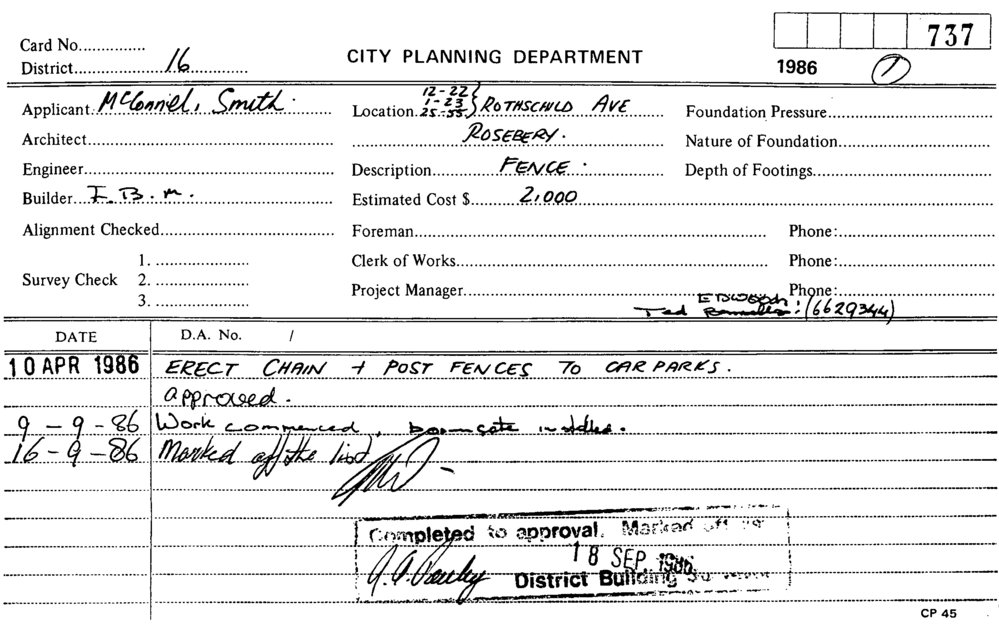 737
Card No...............
District 16
CITY PLANNING DEPARTMENT
1986 1
Applicant McConnel, Smith.
Location 12-22 1-23 25-55 } ROTHSCHILD AVE
Foundation Pressure
Architect
ROSEBERY.
Nature of Foundation
Engineer
Description FENCE.
Depth of Footings
Builder I.B.M.
Estimated Cost $ 2,000
Alignment Checked
Foreman Phone:
Survey Check 1.
2.
3.
Clerk of Works Phone:
Project Manager Phone:
Ted : (6629344)
DATE D.A. No. /
10 APR 1986 ERECT CHAIN + POST FENCES TO CAR PARKS.
approved.
9-9-86 Work commenced, boomgate installed.
16-9-86 Marked off the list
Completed to approval. Marked off
18 SEP. 1986
District Building
CP 45